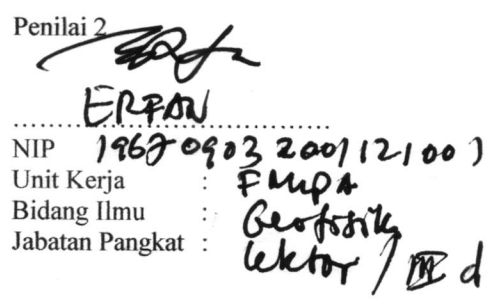 Penilai 2
ERFAN
NIP 19670903 200112 1 001
Unit Kerja : FMIPA
Bidang Ilmu : Geofisik
Jabatan Pangkat : Lektor / III d